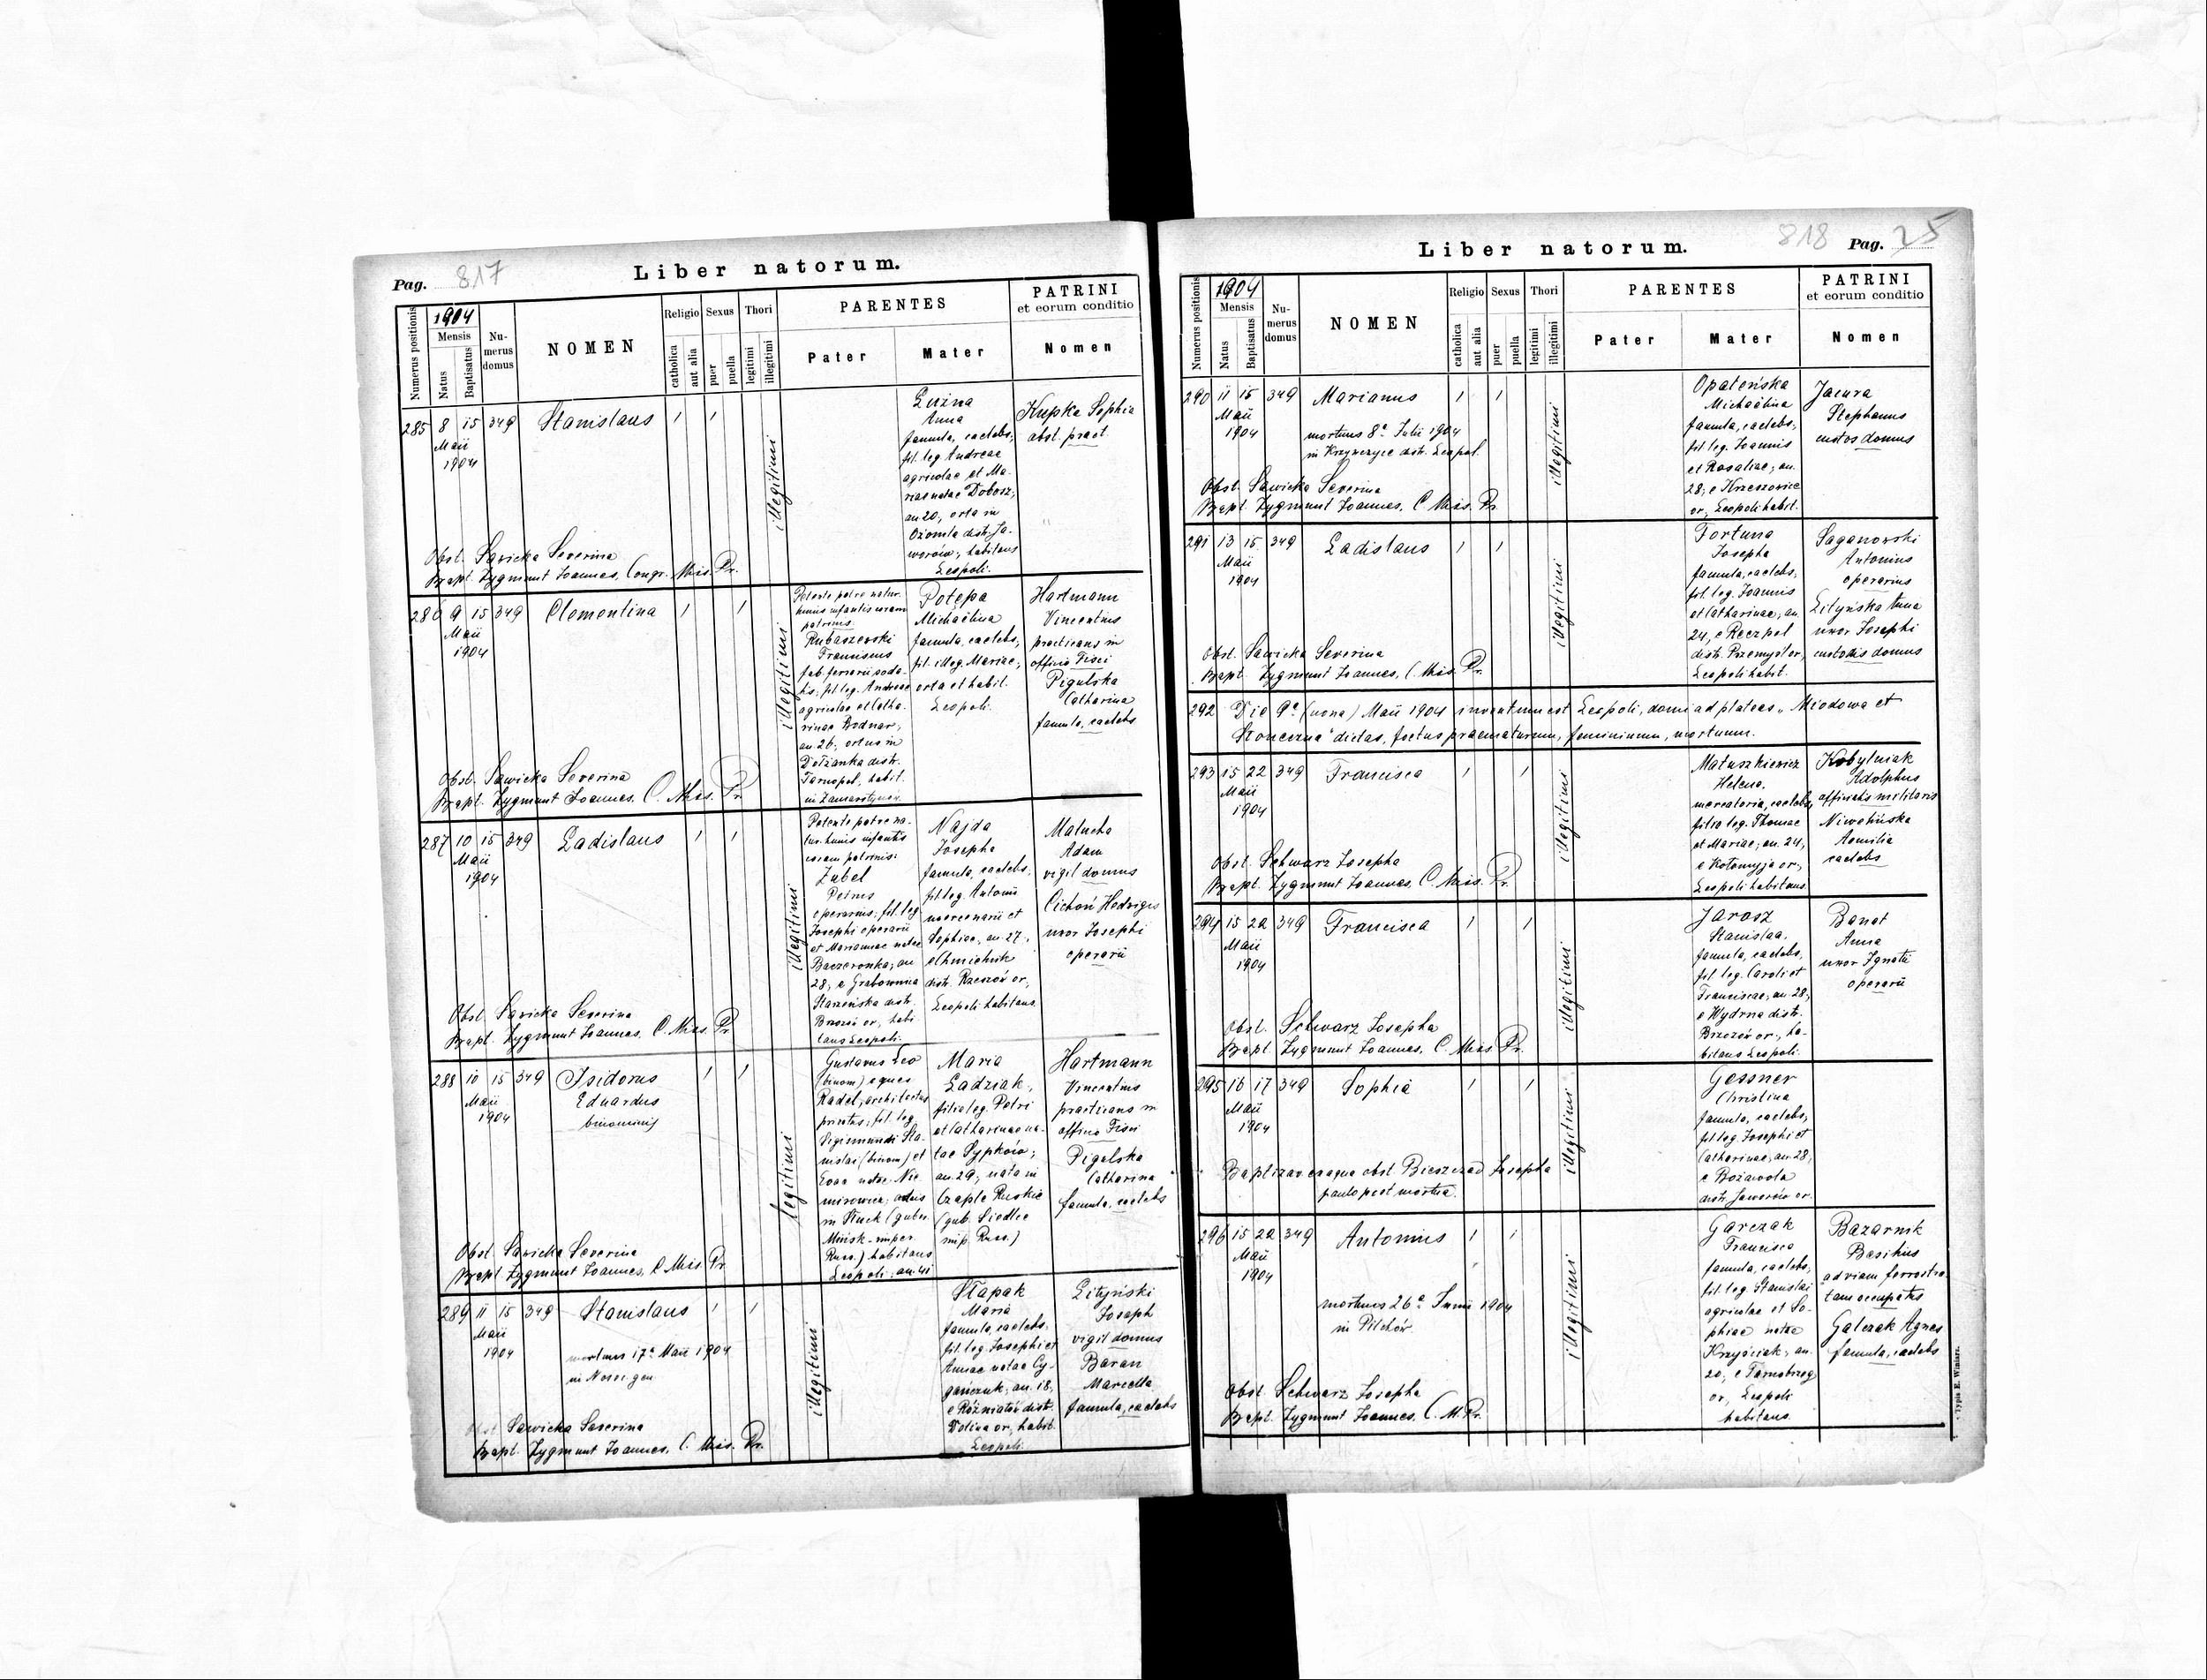 Pag. 817
Liber natorum.
Numerus positionis
1904
Mensis
Natus
Baptisatus
Nu-
merus
domus
NOMEN
Religio
catholica
aut alia
Sexus
puer
puella
Thori
legitimi
illegitimi
PARENTES
Pater
Mater
PATRINI
et eorum conditio
Nomen
285 8 15 349 Stanislaus 1 1
Maii
1904
illegitimi
Anna
famula, caelebs,
fil. leg. Andreae
agricolae et Ma-
riae natae Dobosz,
an 20, orta in
Ożomla distr. Ja-
worów; habitans
Leopoli.
Kupka Sophia
abst. pract.
Obst. Sawicka Severina
Bapt. Zygmunt Joannes, Congr. Mis. Pr.
286 9 15 349 Clementina 1 1
Maii
1904
illegitimi
Petente patre natur.
huius infantis coram
patrinis:
Rubaszewski
Franciscus
fab. ferrarii soda-
lis; fil. leg. Andreae
agricolae et Catha-
rinae Bodnar,
an 26, ortus in
Dołżanka distr.
Tarnopol, habit.
in Zamarstynów.
Potepa
Michaëlina
famula, caelebs,
fil. illeg. Mariae;
orta et habit.
Leopoli.
Hartmann
Vincentius
practicans in
officio Fisci
Pigulska
Catharina
famula, caelebs
Obst. Sawicka Severina
Bapt. Zygmunt Joannes, C. Mis. Pr.
287 10 15 349 Ladislaus 1 1
Maii
1904
illegitimi
Petente patre na-
tur. huius infantis
coram patrinis:
Zubel
Petrus
operarius; fil. leg.
Josephi operarii
et Mariannae natae
an
28; e Grabownica
Starzeńska distr.
Brzozów or., habi
tans Leopoli.
Najda
Josepha
famula, caelebs,
fil. leg. Antonii
mercenarii et
Sophiae, an. 27,
e Chmielnik
distr. Rzeszów or,
Leopoli habitans
Malucha
Adam
vigil domus
Cichoń Hedvigis
uxor Josephi
operarii
Obst. Sawicka Severina
Bapt. Zygmunt Joannes, C. Mis. Pr.
288 10 15 349 Isidorus 1 1
Maii
1904
Eduardus
binominis
legitimi
Gustavus Leo
(binom) eques
Radel, architectus
privatus, fil. leg.
Sigismundi Sta-
nislai (binom) et
Evae natae Nie
mirowicz; natus
in Słuck (guber.
Mińsk - imper.
Russ.) habitans
Leopoli; an. 41
Maria
Ladziak,
filia leg. Petri
et Catharinae na-
tae Sypków;
an. 29; nata in
Czaple Ruskie
(gub. Siedlce
imp. Russ.)
Hartmann
Vincentius
practicans in
officio Fisci
Pigulska
Catharina
famula, caelebs
Obst. Sawicka Severina
Bapt. Zygmunt Joannes, C. Mis. Pr.
289 11 15 349 Stanislaus 1 1
Maii
1904
mortuus 17ª Maii 1904
in
illegitimi
Słapak
Maria
famula, caelebs,
fil. leg. Josephi et
Annae natae Cy-
gańczuk, an. 18,
e Rożniatów distr.
Dolina or, habit.
Leopoli.
Lityński
Joseph
vigil domus
Baran
Marcella
famula, caelebs
Obst. Sawicka Severina
Bapt. Zygmunt Joannes, C. Mis. Pr.
Liber natorum.
818 Pag. 25
Numerus positionis
1904
Mensis
Natus
Baptisatus
Nu-
merus
domus
NOMEN
Religio
catholica
aut alia
Sexus
puer
puella
Thori
legitimi
illegitimi
PARENTES
Pater
Mater
PATRINI
et eorum conditio
Nomen
290 11 15 349 Marianus 1 1
Maii
1904
mortuus 8ª Julii 1904
in Krzywczyce distr. Leopol.
illegitimi
Opateńska
Michaëlina
famula, caelebs,
fil. leg. Joannis
et Rosaliae; an.
28; e Krzeszowice
or, Leopoli habit.
Jacura
Stephanus
custos domus
Obst. Sawicka Severina
Bapt. Zygmunt Joannes, C Mis. Pr.
291 13 15 349 Ladislaus 1 1
Maii
1904
illegitimi
Fortuna
Josepha
famula, caelebs,
fil. leg. Joannis
et Catharinae, an.
24, e Reczpol
distr. Przemysl or,
Leopoli habit.
Saganowski
Antonius
operarius
Lityńska Anna
uxor Josephi
custodis domus
Obst. Sawicka Severina
Bapt. Zygmunt Joannes, C. Mis. Pr.
292 Die 9ª (nona) Maii 1904 inventum est Leopoli, domi ad plateas „Miodowa et
Słoneczna" dictas, foetus praematurum, femininum, mortuum.
293 15 22 349 Francisca 1 1
Maii
1904
illegitimi
Matuszkiewicz
Helena,
mercatoria, caelebs,
filia leg. Thomae
et Mariae, an. 24,
e Kołomyja or,
Leopoli habitans.
Kobylniak
Adolphus
officialis militaris
Niwolińska
Aemilia
caelebs
Obst. Schwarz Josepha
Bapt. Zygmunt Joannes, C. Mis. Pr.
294 15 22 349 Francisca 1 1
Maii
1904
illegitimi
Jarosz
Stanislaa,
famula, caelebs,
fil. leg. Caroli et
Franciscae, an. 28,
e Wydrna distr.
Brzozów or, ha-
bitans Leopoli.
Banat
Anna
uxor Ignatii
operarii
Obst. Schwarz Josepha
Bapt. Zygmunt Joannes, C. Mis. Pr.
295 16 17 349 Sophia 1 1
Maii
1904
illegitimi
Gessner
Christina
famula, caelebs,
fil. leg. Josephi et
Catharinae, an. 28,
e Bożawola
distr. Jaworów or.
Baptizav. ex aqua obst. Bieszczad Josepha
paulo post mortua.
296 15 22 349 Antonius 1 1
Maii
1904
mortuus 26ª Junii 1904
in Pilchów
illegitimi
Garczak
Francisca
famula, caelebs,
fil. leg. Stanislai
agricolae et So-
phiae natae
Krzyściak, an.
20, e Tarnobrzeg
or, Leopoli
habitans.
Bazarnik
Basilius
ad viam ferrostra-
tam occupatus
Galczak Agnes
famula, caelebs
Obst. Schwarz Josepha
Bapt. Zygmunt Joannes, C. M. Pr.
Typis E. Winiarz.